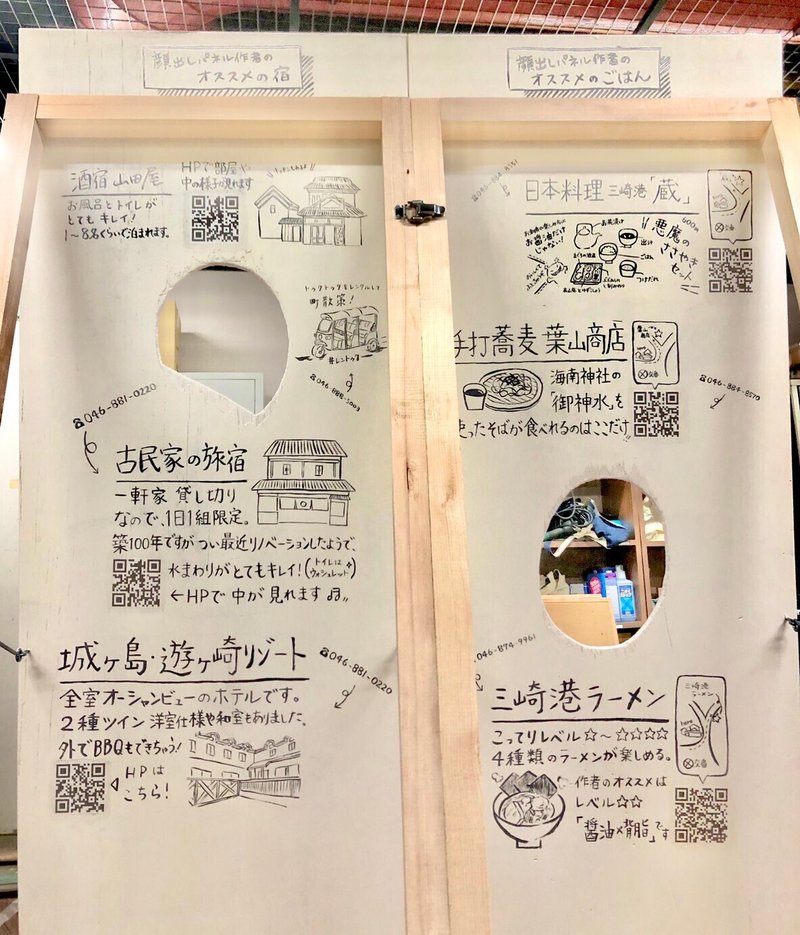 顔出しパネル作者の
オススメの宿
酒宿 山田屋
お風呂とトイレが
とてもキレイ!
1〜8名くらいで泊まれます。
HPで部屋や
中の様子が見れます
トゥクトゥクをレンタルして
町散策!
#レントゥク
☎046-888-5003
☎046-881-0220
古民家の旅宿
一軒家 貸し切り
なので、1日1組限定。
築100年ですがつい最近リノベーションしたようで、
水まわりがとてもキレイ!(トイレは
ウォシュレット)
←HPで中が見れます♫〃
城ヶ島・遊ヶ崎リゾート
☎046-881-0220
全室オーシャンビューのホテルです。
2種ツイン 洋室仕様や和室もありました、
外でBBQもできちゃう!
HPは
こちら!
顔出しパネル作者の
オススメのごはん
日本料理 三崎港「蔵」
お醤油だけ
じゃない!
お茶漬け
出汁
ごはん
つけだれ
600円
悪魔の
ささやき
セット
交番
手打蕎麦 葉山商店
海南神社の
「御神水」を
使ったそばが食べれるのはここだけ!!
交番
☎046-884-8570
046-874-9961
三崎港ラーメン
こってりレベル☆〜☆☆☆☆
4種類のラーメンが楽しめる。
作者のオススメは
レベル☆☆
「醤油×背脂」です
三崎港
ラーメン
here
交番